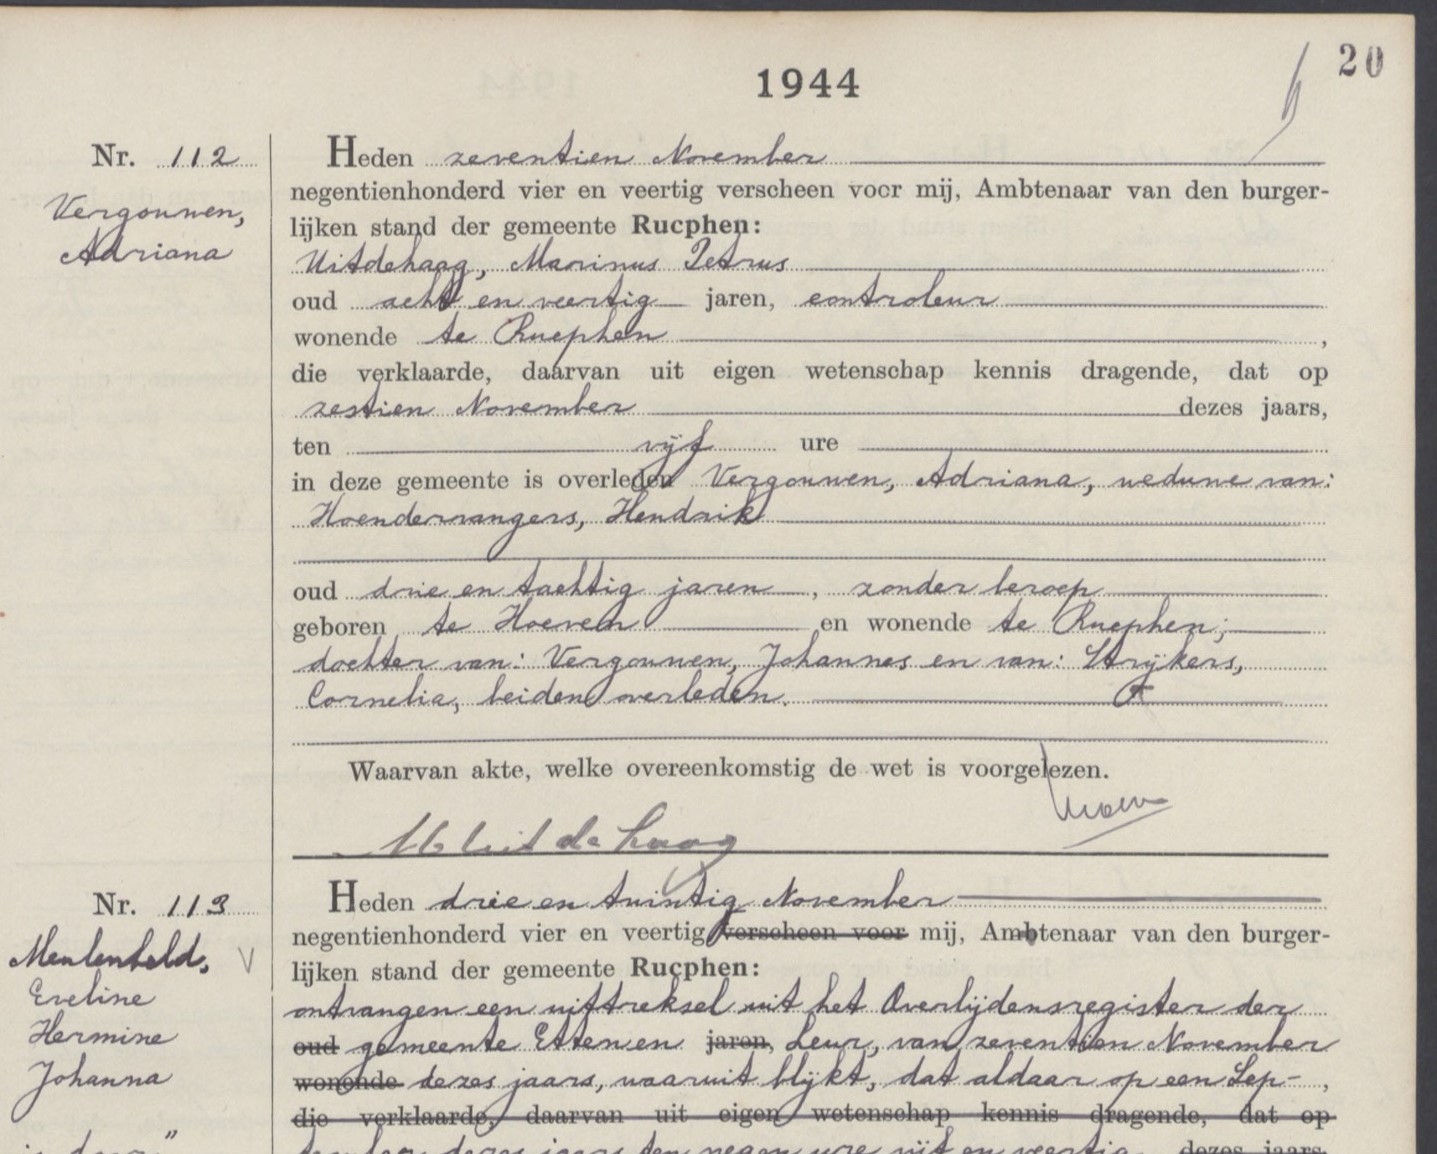 20
1944
Nr. 112
Vergouwen,
Adriana
Heden zeventien November
negentienhonderd vier en veertig verscheen voor mij, Ambtenaar van den burger-
lijken stand der gemeente Rucphen:
Uitdehaag, Marinus Petrus
oud acht en veertig jaren, controleur
wonende te Rucphen,
die verklaarde, daarvan uit eigen wetenschap kennis dragende, dat op
zestien November dezes jaars,
ten vijf ure
in deze gemeente is overleden Vergouwen, Adriana, weduwe van:
Hoendervangers, Hendrik
oud drie en tachtig jaren, zonder beroep
geboren te Hoeven en wonende te Rucphen;
dochter van: Vergouwen, Johannes en van: Strijkers,
Cornelia, beiden overleden.
Waarvan akte, welke overeenkomstig de wet is voorgelezen.
M Uit de haag
Nr. 113
Meulenbeld,
Eveline
Hermine
Johanna
Heden drie en twintig November
negentienhonderd vier en veertig verscheen voor mij, Ambtenaar van den burger-
lijken stand der gemeente Rucphen:
ontvangen een uittreksel uit het Overlijdensregister der
oud gemeente Etten en jaren, Leur, van zeventien November
wonende dezes jaars, waaruit blijkt, dat aldaar op een Sep-,
die verklaarde, daarvan uit eigen wetenschap kennis dragende, dat op
tember dezes jaars ten negen ure vijf en veertig dezes jaars